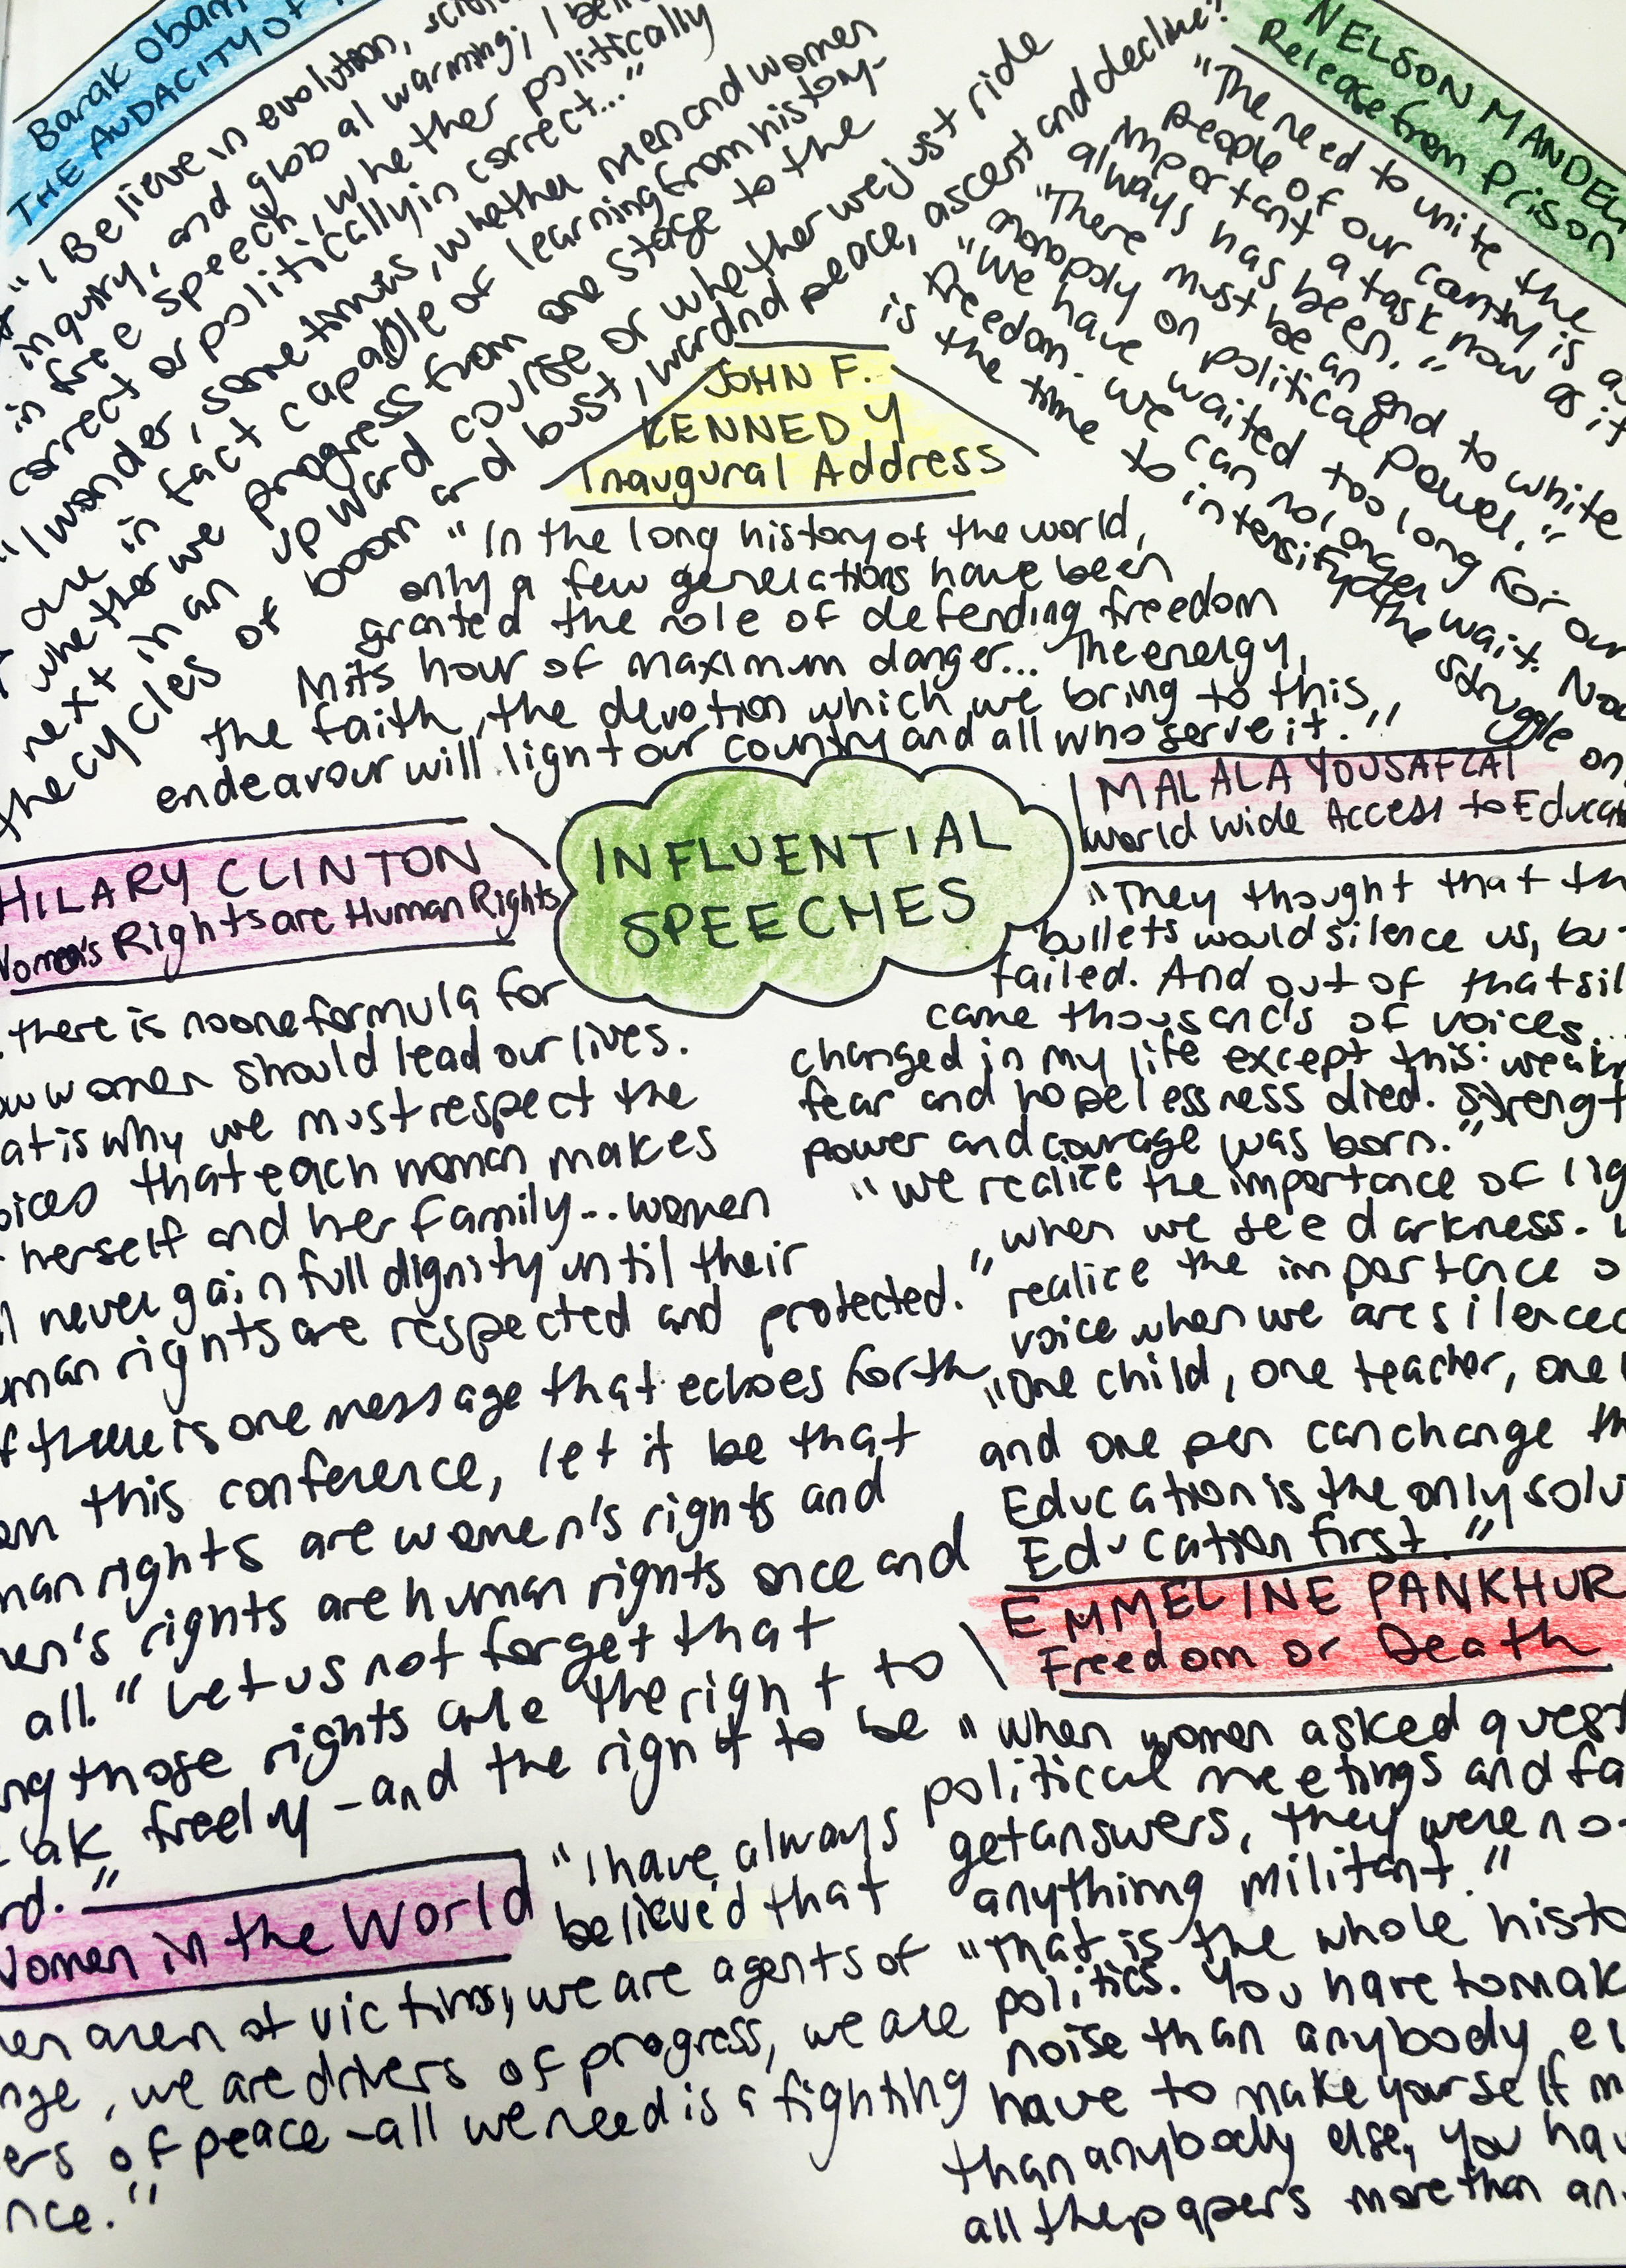 Barak Obam
THE AUDACITY OF
"I Believe in evolution,
inquiry, and global warming; I
in free speech, whether politically
correct or politically in correct..."
"I wonder, sometimes, whether men and women
are in fact capable of learning from history-
whether we progress from one stage to the
next in an upward course or whether we just ride
the cycles of boom and bust, war and peace, ascent and decline."
NELSON MANDEL
Release from Prison
"The need to unite the
people of our country is as
important a task now as it
always has been."
"There must be an end to white
monopoly on political power."
"We have waited too long for our
freedom. We can no longer wait. Now
is the time to intensify the struggle on
JOHN F.
KENNEDY
Inaugural Address
"In the long history of the world,
only a few generations have been
granted the role of defending freedom
in its hour of maximum danger... The energy,
the faith, the devotion which we bring to this
endeavour will light our country and all who serve it."
INFLUENTIAL
SPEECHES
MALALA YOUSAFZAI
World Wide Access to Educat
"They thought that th
bullets would silence us, but
failed. And out of that sil
came thousands of voices...
changed in my life except this: weakn
fear and hopelessness died. Strengt
power and courage was born."
"We realize the importance of lig
when we see darkness. W
realize the importance o
voice when we are silenced
"One child, one teacher, one
and one pen can change th
Education is the only solu
Education first."
HILARY CLINTON
Women's Rights are Human Rights
there is no one formula for
ow women should lead our lives.
at is why we must respect the
oices that each woman makes
herself and her family... women
ll never gain full dignity until their
uman rights are respected and protected."
if there is one message that echoes forth
om this conference, let it be that
man rights are women's rights and
men's rights are human rights once and
all." Let us not forget that
ng those rights are the right to
eak freely - and the right to be
rd."
EMMELINE PANKHUR
Freedom or Death
"When women asked quest
political meetings and fa
get answers, they were not
anything militant."
"That is the whole histo
politics. You have to mak
noise than anybody el
have to make yourself m
than anybody else, you hav
all the papers more than an
Women in the World
"I have always
believed that
en aren ot victims, we are agents of
nge, we are drivers of progress, we are
ers of peace - all we need is a fighting
nce."